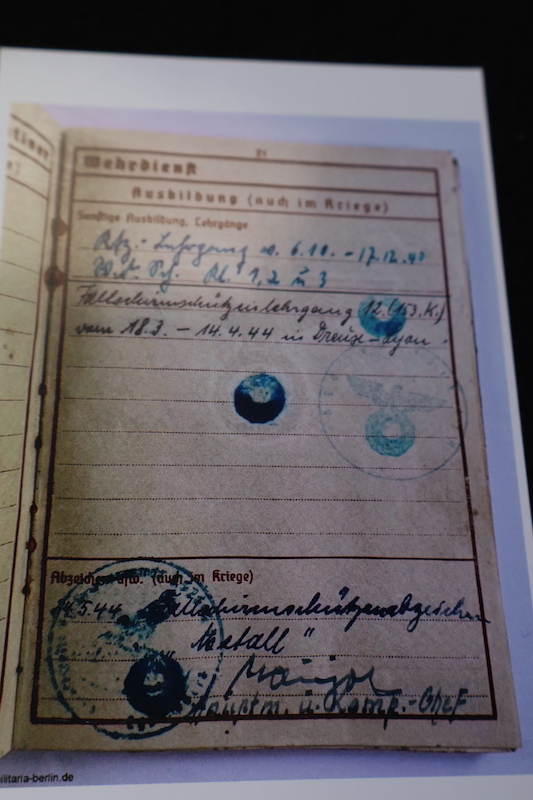 21
Wehrdienst
Ausbildung (auch im Kriege)
Sonstige Ausbildung, Lehrgänge
Lehrgang v. 6.10. - 17.12.40
1, 2 u 3
Fallschirmschützenlehrgang 12 (153. K.)
vom 18.3. - 14.4.44 in Dreux -
Abzeichen usw. (auch im Kriege)
5.44 Fallschirmschützenabzeichen
"Metall"
Hauptm. u. Komp.-Chef
militaria-berlin.de